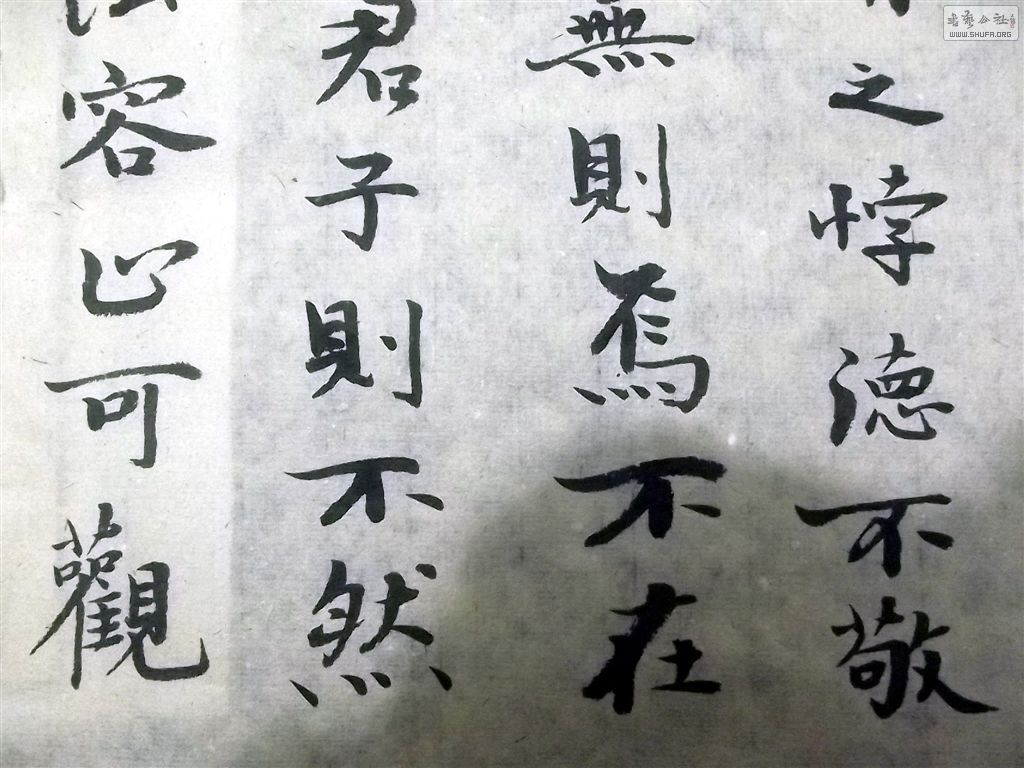 之悖德不敬
無則焉不在
君子則不然
容止可觀
書藝公社
WWW.SHUFA.ORG